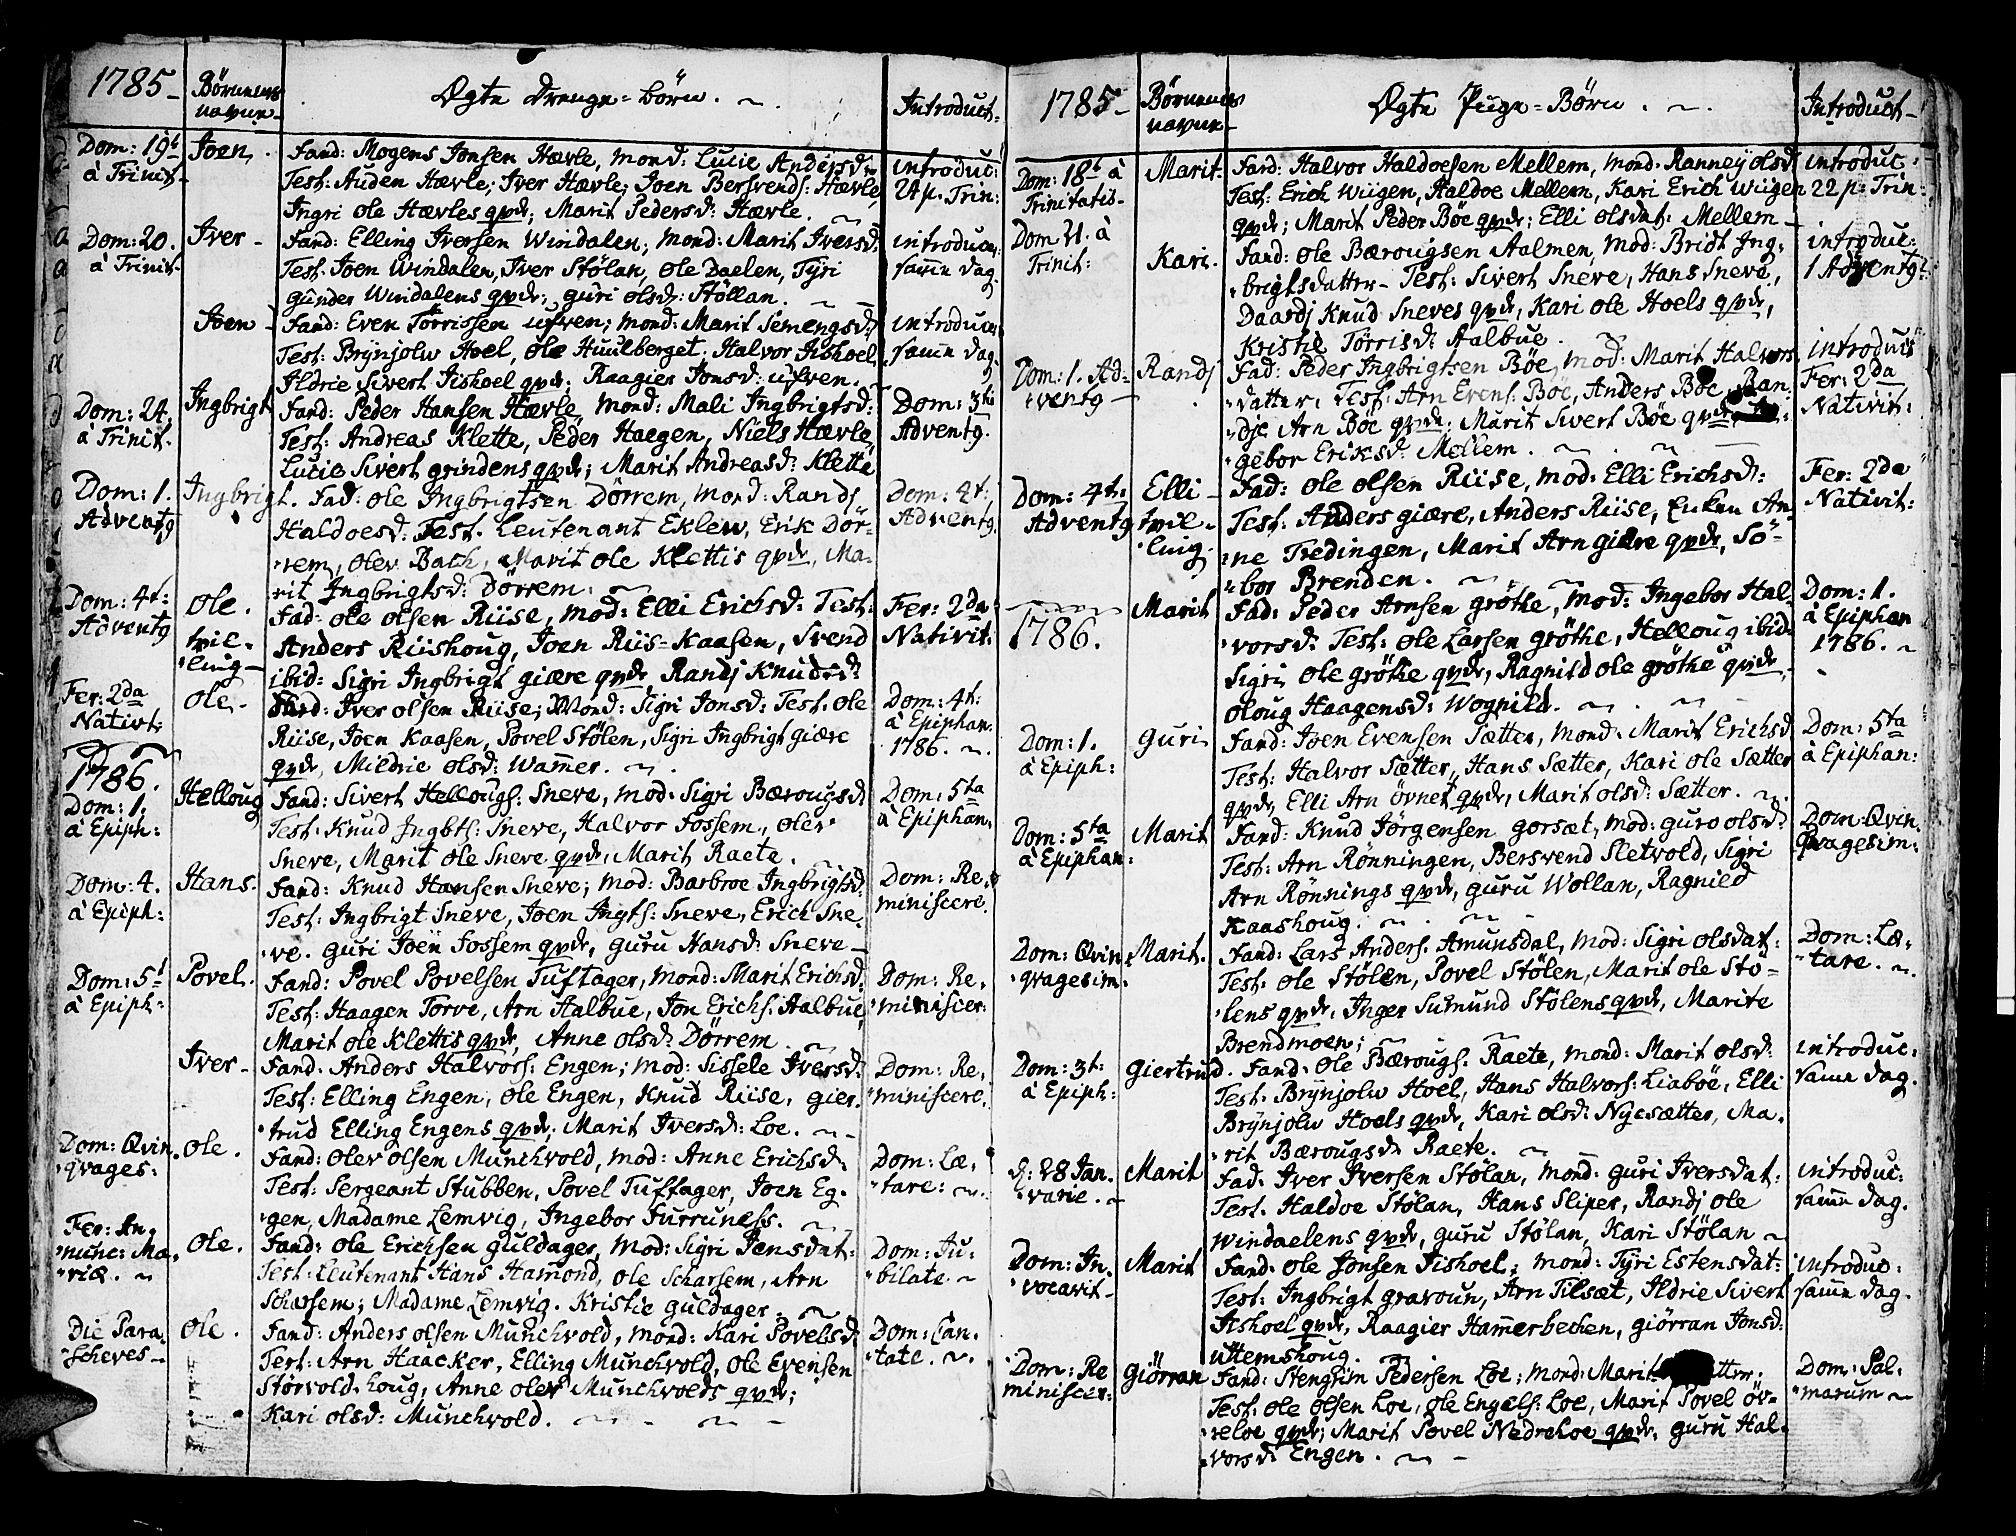 1785-
Børnenes
navne-
Øgte Drenge=börn.
Introduct:
Dom: 19t
à Trinit-
Joen.
Fand: Mogens Jonsen Hævle, Mond: Lucie Andersd:
Test: Auden Hævle; Iver Hævle; Joen Bersvends: Hævle,
Ingri Ole Hævles qvde; Marit Pedersd: Hævle.
introduc:
24 p. Trin:
Dom: 20.
à Trinit-
Iver-
Fand: Elling Iversen Windalen; mond: Marit Iversd:
Test: Joen Windalen, Iver Stölan, Ole Daelen, Tÿri
Gunder Windalens qvde; guri olsd: Stöllan.
introduc:
samme dag.
Joen-
Fand: Even Törrissen ufven; mond: Marit Semengsd:
Test: Brÿnjolw Hoel, Ole Huulberget. Halvor Fishoel,
Ildrie Sivert Fishoel qvde. Raagier Jonsd: ufven.
introduc:
samme dag.
Dom: 24.
à Trinit.
Ingbrigt
Fand: Peder Hansen Hævle, mond: Mali Ingbrigtsd:
Test: Andreas Klette, Peder Haegen, Niels Hævle,
Lucie Sivert grindens qvde; Marit Andreasd: Klette
Dom: 3tie
Adventg.
Dom: 1.
Adventg
Ingbrigt.
Fad: ole Ingbrigtsen Dörrem, mond: Randj
Haldoesd: Test. Leutenant Eklew, Erik Dör-
rem, Olev Bach, Marit ole Klettis qvde, Ma-
rit Ingbrigtsd: Dörrem.
Dom: 4t:
Adventg.
Dom: 4t:
Adventg
Ole.
tvil-
ling-
Fad: ole olsen Riise, Mod: Elli Erichsd: Test:
Anders Riishoug, Joen Riis=Kaasen, Svend
ibid: Sigri Ingbrigt giære qvde Randj Knudsd:
Fer: 2da
Nativit:
Fer: 2da
Nativt:
Ole-
Fand: Iver olsen Riise; Mond: Sigri Jonsd: Test: ole
Riise, Joen Kaasen, Povel Stölen, Sigri Ingbrigt giære
qvde, Mildrie olsd: Wammer.
Dom: 4t:
à Epiphan.
1786.
1786.
Dom: 1.
à Epiph:
Helloug
Fand: Sivert Hellougs: Sneve, mod: Sigri Bærougsd
Test: Knud Ingbts: Sneve, Halvor Fossem, Olev
Sneve, Marit Ole Sneve qvde, Marit Raete.
Dom: 5ta
à Epiphan.
Dom: 4.
à Epiph:
Hans.
Fand: Knud Hansen Sneve; mod: Barbroe Ingbrigtsd:
Test: Ingbrigt Sneve, Joen Ingts: Sneve, Erich Sne-
ve. guri Joen Fossem qvde, guru Hansd: Sneve-
Dom: Re-
miniscere.
Dom: 5t
à Epiph:
Povel.
Fand: Povel Povelsen Tuftager, mond: Marit Erichsd:
Test: Haagen Torve, Arn Halbue, Jon Erichs: Aalbue,
Marit ole Klettis qvde, Anne olsd: Dörrem.
Dom: Re-
miniscer:
Iver-
Fand: Anders Halvors: Engen; mod: Sissele Iversd:
Test: Elling Engen, Ole Engen, Knud Riise, gier-
trud Elling Engens qvde; Marit Iversd: Loe.
Dom: Re-
miniscere.
Dom: Qvin-
qvages:
Ole.
Fand: Olev olsen Munchvold, mod: Anne Erichsd:
Test: Sergeant Stubben, Povel Tuftager, Joen Eg-
gen, Madame Lemvig, Ingebor Furruness.
Dom: Læ-
tare:
Fer: An-
nunc: Ma-
riæ.
Ole.
Fand: Ole Erichsen guldager, Mod: Sigri Jensdat:
Test: Leutenant Hans Hamond, ole Scharsem, Arn
Scharsem; Madame Lemvig. Kristie guldager.
Dom: Ju-
bilate.
Die Para-
scheves-
Ole.
Fand: Anders olsen Munchvold, mond: Kari Povelsd:
Test: Arn Haacker, Elling Munchvold, Ole Evensen
Störvold-houg, Anne Olev Munchvolds qvde;
Kari olsd: Munchvold.
Dom: Can-
tate.
1785-
Børnenes
navne-
Øgte Piige=Börn.
Introduct-
Dom: 18t à
Trinitatis-
Marit.
Fard: Halvor Haldoesen Mellem, mod: Ranneÿ olsd:
Test: Erich Wiigen, Haldoe Mellem, Kari Erich Wiigen
qvde; Marit Peder Böe qvde; Elli olsdat: Mellem-
introduc:
22 p: Trin:
Dom 21. à
Trinit:
Kari.
Fand: ole Bærougsen Aalmen, mod: Bridt Ing-
brigtsdatter- Test: Sivert Sneve, Hans Sneve,
Daardj Knud Sneves qvde, Kari ole Hoels qvde,
Kristie Törrisd: Aalbue.
introduc:
1 Adventg:
Dom: 1. Ad-
ventg
Randj
Fad: Peder Ingbrigtsen Böe, mod: Marit Halvors
datter, Test: Arn Evens: Böe, Anders Böe, Ran-
dje Arn Böe qvde: Marit Sivert Böe qvde
gebor Eriksd: Mellem.
introduc:
Fer: 2da
Nativit:
Dom: 4t:
Adventg
Elli-
tvil-
ling.
Fad: ole olsen Riise, mod: Elli Erichsd:
Test: Anders giære, Anders Riise, Enken An-
ne Tredingen, Marit Arn giære qvde, Sö-
bor Brenden.
Fer: 2da
Nativit:
1786.
Marit
Fad: Peder Arnsen gröthe, mod: Ingebor Hal-
vorsd: Test: ole Larsen gröthe, Helloug ibid:
Sigri ole gröthe qvde, Ragnild ole gröthe qvde,
oloug Haagensd: Wognild.
Dom: 1.
à Epiphan
1786.
Dom: 1.
à Epiph:
Guri
Fand: Joen Evensen Sætter, mond: Marit Erichsd
Test: Halvor Sætter, Hans Sætter, Kari ole Sætter
qvde, Elli Arn övnet qvde, Marit olsd: Sætter.
Dom: 5ta
à Epiphan:
Dom: 5ta
à Epiphan:
Marit
Fand: Knud Jörgensen gorsæt, mod: guro olsd:
Test: Arn Rönningen, Bersvend Sletvold, Sigri
Arn Rönnings qvde, guru Wollan, Ragnild
Kaashoug.
Dom: Qvin-
qvagesim:
Dom: Qvin-
qvagesim:
Marit.
Fand: Lars Anders: Amunsdal, mod: Sigri olsdat:
Test: ole Stölen, Povel Stölen, Marit ole Stö-
lens qvde, Inger Surnund Stölens qvde, Marite
Brendmoen;
Dom: Læ-
tare.
Dom: 3t:
à Epiph:
Giertrud.
Fand: Ole Bærougs: Raete, mond: Marit olsd:
Test: Brÿnjolw Hoel, Hans Halvors: Liaböe, Elli
Brÿnjolw Hoels qvde, Kari olsd: Nÿesætter, Ma-
rit Bærougsd: Raete.
introduc:
samme dag.
d: 28 Jan-
varie.
Marit
Fad: Iver Iversen Stölan, mond: guri Iversdat:
Test. Haldoe Stölan, Hans Sliper, Randj ole
Windaelens qvde, guru Stölan, Kari Stölan
introduc:
samme dag.
Dom: In-
vocavit-
Marit
Fand: ole Jonsen Fishoel; mond: Tÿri Estensdat:
Test: Ingbrigt gravoun, Arn Tilsæt, Ildrie Sivert
Fishoel qvde, Raagier Hammerbechen, giörran Jonsd:
uttemshoug.
introduc:
samme dag.
Dom: Re
miniscer:
Giörran
Fand: Stengrim Pedersen Loe; mond: Marit
Test: ole olsen Loe, ole Engels: Loe, Marit Povel öv-
reloe qvde; Marit Povel Nedreloe qvde, guru Hal-
vorsd: Engen.
Dom: Pal-
marum